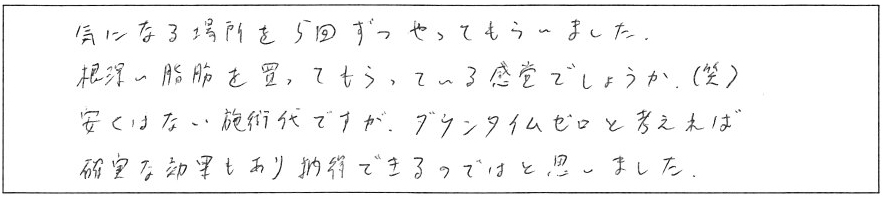 気になる場所を5回ずつやってもらいました.
根深い脂肪を買ってもらっている感覚でしょうか.(笑)
安くはない施術代ですが、ダウンタイムゼロと考えれば
確実な効果もあり納得できるのではと思いました.